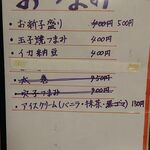 おつまみ
・お新子盛り 400円 500円
・玉子焼つまみ 400円
・イカ納豆 400円
・太巻 950円
・穴子つまみ 900円
・アイスクリーム(バニラ・抹茶・黒ゴマ) 180円